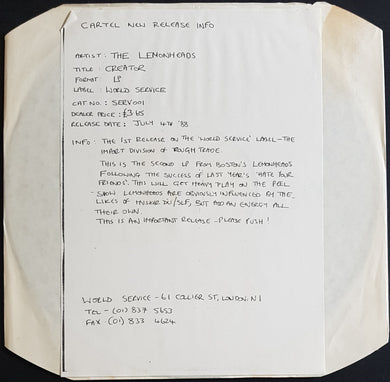 CARTEL NEW RELEASE INFO
ARTIST : THE LEMONHEADS
TITLE : CREATOR
FORMAT : LP
LABEL : WORLD SERVICE
CAT NO. : SERV001
DEALER PRICE : £3.65
RELEASE DATE : JULY 4TH '88
INFO : THE 1ST RELEASE ON THE 'WORLD SERVICE' LABEL – THE
IMPORT DIVISION OF ROUGH TRADE.
THIS IS THE SECOND LP FROM BOSTON'S LEMONHEADS
FOLLOWING THE SUCCESS OF LAST YEAR'S 'HATE YOUR
FRIENDS'. THIS WILL GET HEAVY PLAY ON THE PEEL
SHOW. LEMONHEADS ARE OBVIOUSLY INFLUENCED BY THE
LIKES OF HUSKER DU/SLF, BUT ADD AN ENERGY ALL
THEIR OWN.
THIS IS AN IMPORTANT RELEASE – PLEASE PUSH !
WORLD SERVICE – 61 COLLIER ST, LONDON. N1
TEL – (01) 837 5653
FAX (01) 833 4624